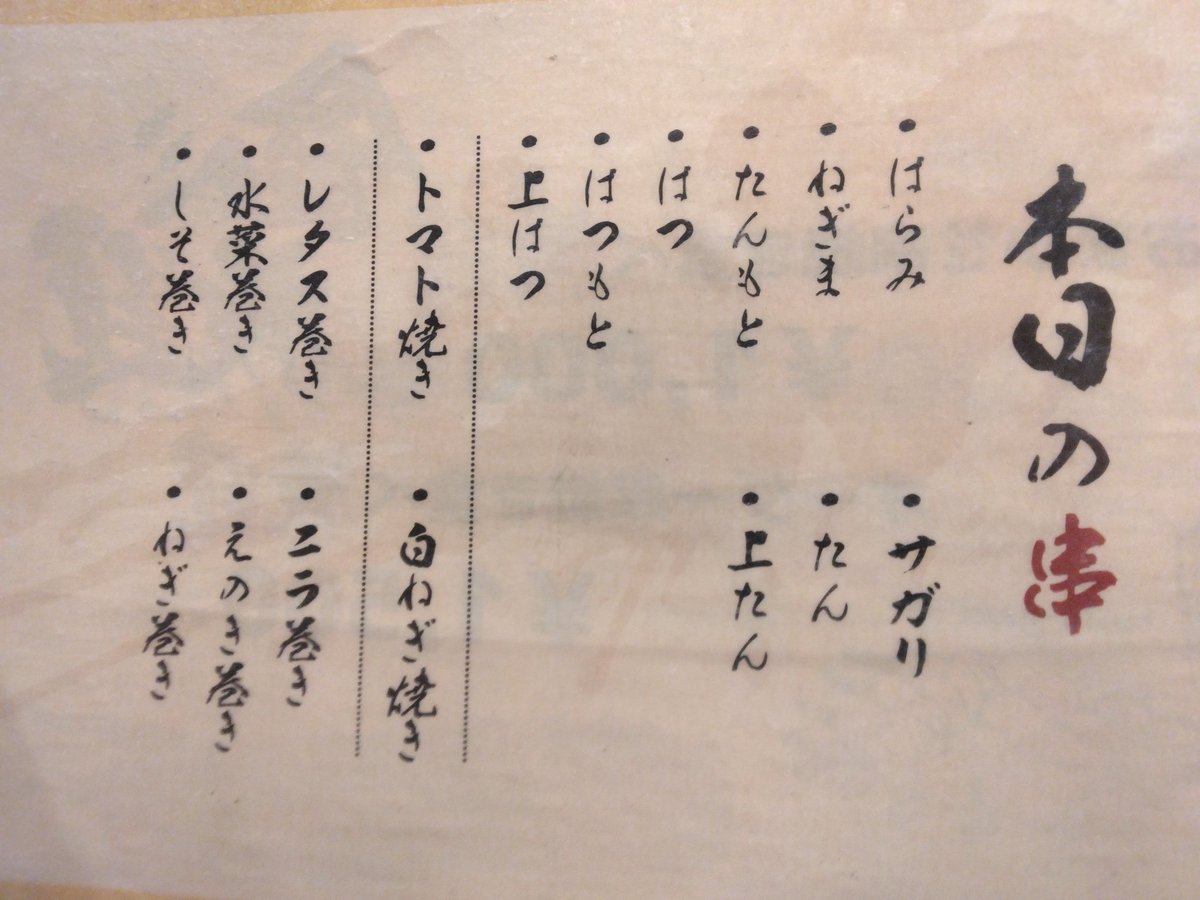 本日の串
・はらみ
・サガリ
・ねぎま
・たん
・たんもと
・上たん
・はつ
・はつもと
・上はつ
・トマト焼き
・白ねぎ焼き
・レタス巻き
・ニラ巻き
・水菜巻き
・えのき巻き
・しそ巻き
・ねぎ巻き